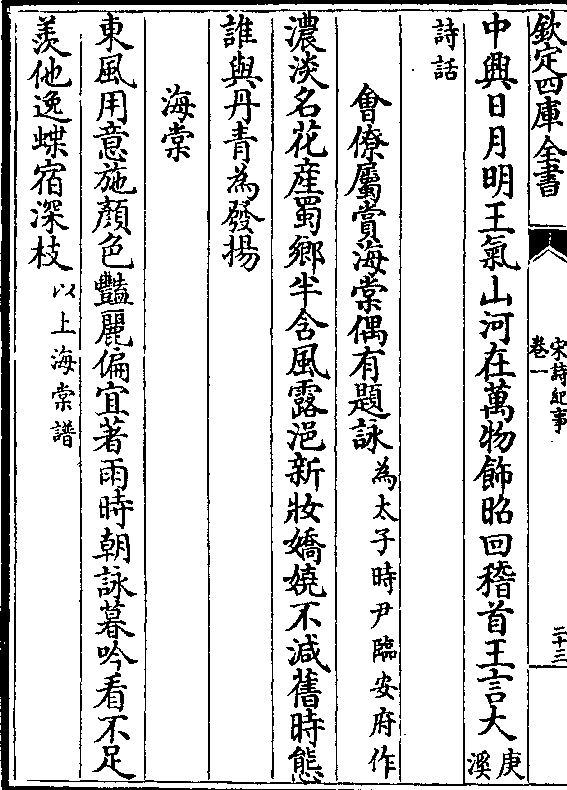 欽定四庫全書
宋詩紀事
卷一
二十三
中興日月明王氣山河在萬物飾昭回稽首王言大庚溪
詩話
會僚屬賞海棠偶有題詠為太子時尹臨安府作
濃淡名花産蜀鄉半含風露浥新妝嬌嬈不減舊時態
誰與丹青為發揚
海棠
東風用意施顏色豔麗偏宜著雨時朝詠暮吟看不足
羨他逸蝶宿深枝以上海棠譜